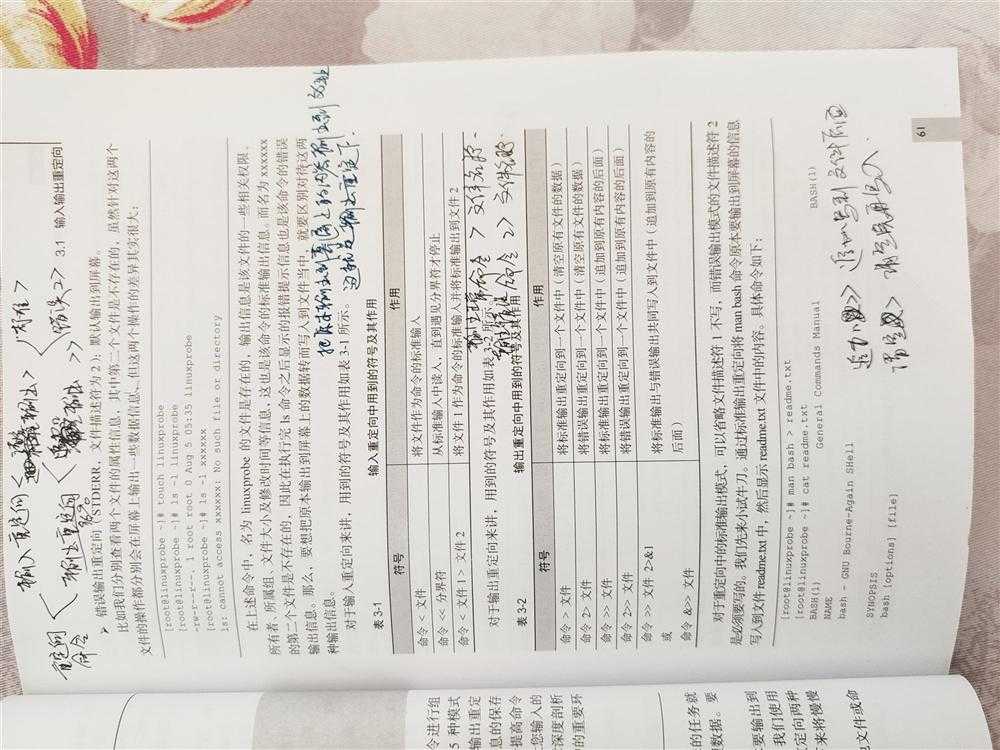 3.1 输入输出重定向
重定向
命令
输入重定向 <
输出重定向
输出>
标准 >
错误 2>
>>
➢ 错误输出重定向（STDERR，文件描述符为 2）：默认输出到屏幕。
比如我们分别查看两个文件的属性信息，其中第二个文件是不存在的，虽然针对这两个
文件的操作都分别会在屏幕上输出一些数据信息，但这两个操作的差异其实很大：
[root@linuxprobe ~]# touch linuxprobe
[root@linuxprobe ~]# ls -l linuxprobe
-rw-r--r--. 1 root root 0 Aug 5 05:35 linuxprobe
[root@linuxprobe ~]# ls -l xxxxxx
ls: cannot access xxxxxx: No such file or directory
在上述命令中，名为 linuxprobe 的文件是存在的，输出信息是该文件的一些相关权限、
所有者、所属组、文件大小及修改时间等信息，这也是该命令的标准输出信息。而名为 xxxxxx
的第二个文件是不存在的，因此在执行完 ls 命令之后显示的报错提示信息也是该命令的错误
输出信息。那么，要想把原本输出到屏幕上的数据转而写入到文件当中，就要区别对待这两
种输出信息。
把原本输出到屏幕上的内容输出到
这就是输出重定
对于输入重定向来讲，用到的符号及其作用如表 3-1 所示。
表 3-1 输入重定向中用到的符号及其作用
符号 作用
命令 < 文件 将文件作为命令的标准输入
命令 << 分界符 从标准输入中读入，直到遇见分界符才停止
命令 < 文件 1 > 文件 2 将文件 1 作为命令的标准输入并将标准输出到文件 2
对于输出重定向来讲，用到的符号及其作用如表 3-2 所示。
命令 > 文件名称
命令 2>> 文件名称
表 3-2 输出重定向中用到的符号及其作用
符号 作用
命令 > 文件 将标准输出重定向到一个文件中（清空原有文件的数据）
命令 2> 文件 将错误输出重定向到一个文件中（清空原有文件的数据）
命令 >> 文件 将标准输出重定向到一个文件中（追加到原有内容的后面）
命令 2>> 文件 将错误输出重定向到一个文件中（追加到原有内容的后面）
命令 >> 文件 2>&1
或
命令 &>> 文件
将标准输出与错误输出共同写入到文件中（追加到原有内容的
后面）
对于重定向中的标准输出模式，可以省略文件描述符 1 不写，而错误输出模式的文件描述符 2
是必须要写的。我们先来小试牛刀。通过标准输出重定向将 man bash 命令原本要输出到屏幕的信息
写入到文件 readme.txt 中，然后显示 readme.txt 文件中的内容。具体命令如下：
[root@linuxprobe ~]# man bash > readme.txt
[root@linuxprobe ~]# cat readme.txt
BASH(1) General Commands Manual BASH(1)
NAME
bash - GNU Bourne-Again SHell
SYNOPSIS
bash [options] [file]
追加 >> 追加写到文件后面
清空 > 清空后再写入
61
令进行组
5 种模式
输出重定
息的保存
提高命令
您输入的
深度剖析
的重要环
的任务就
数据。要
要输出到
我们使用
定向两种
来将慢慢
文件或命